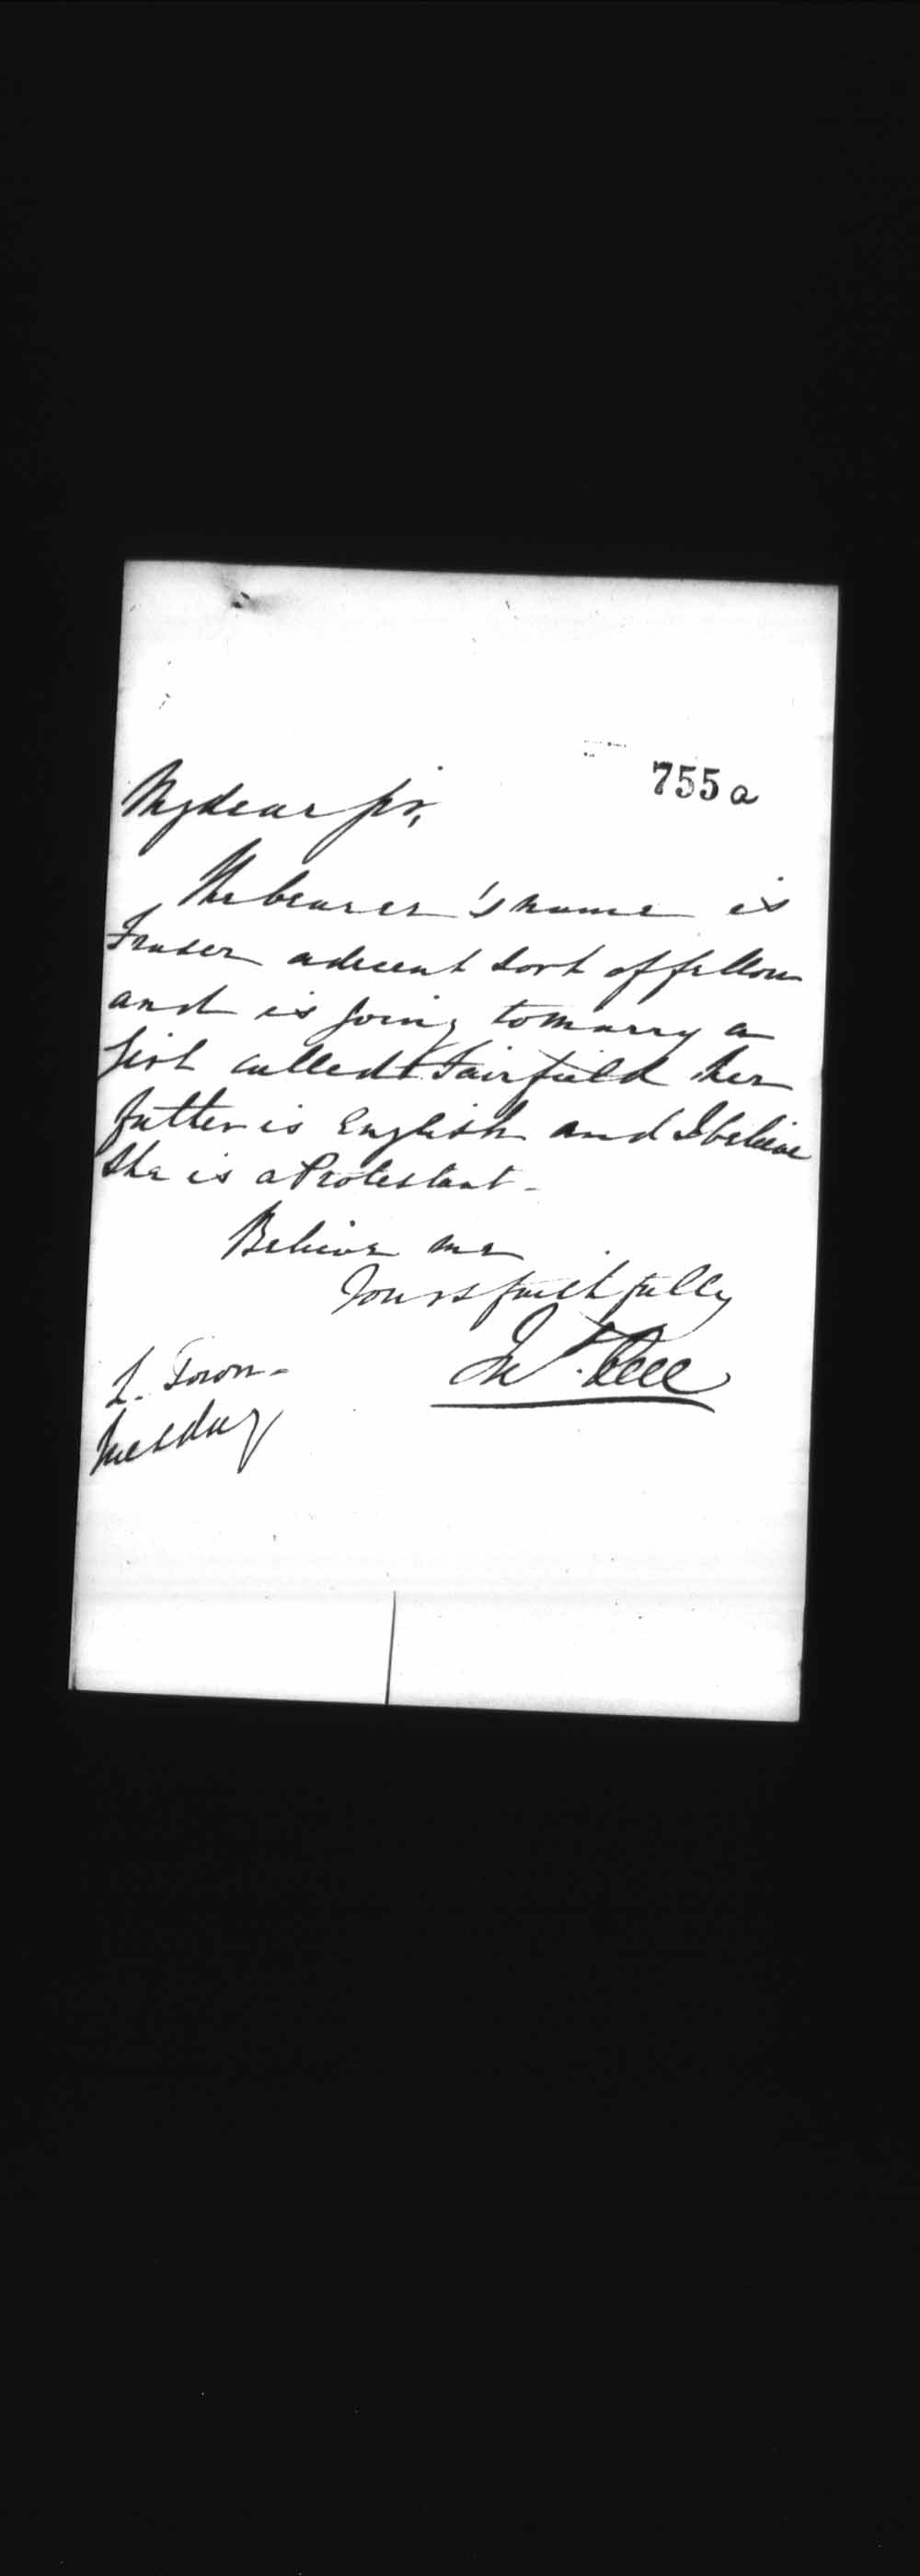 755a
My dear Sir,
The bearer's name is
Fraser a decent sort of fellow
and is going to marry a
girl called Fairfield her
father is English and I believe
She is a Protestant -
Believe me
Yours faithfully
L. Town -
Tuesday